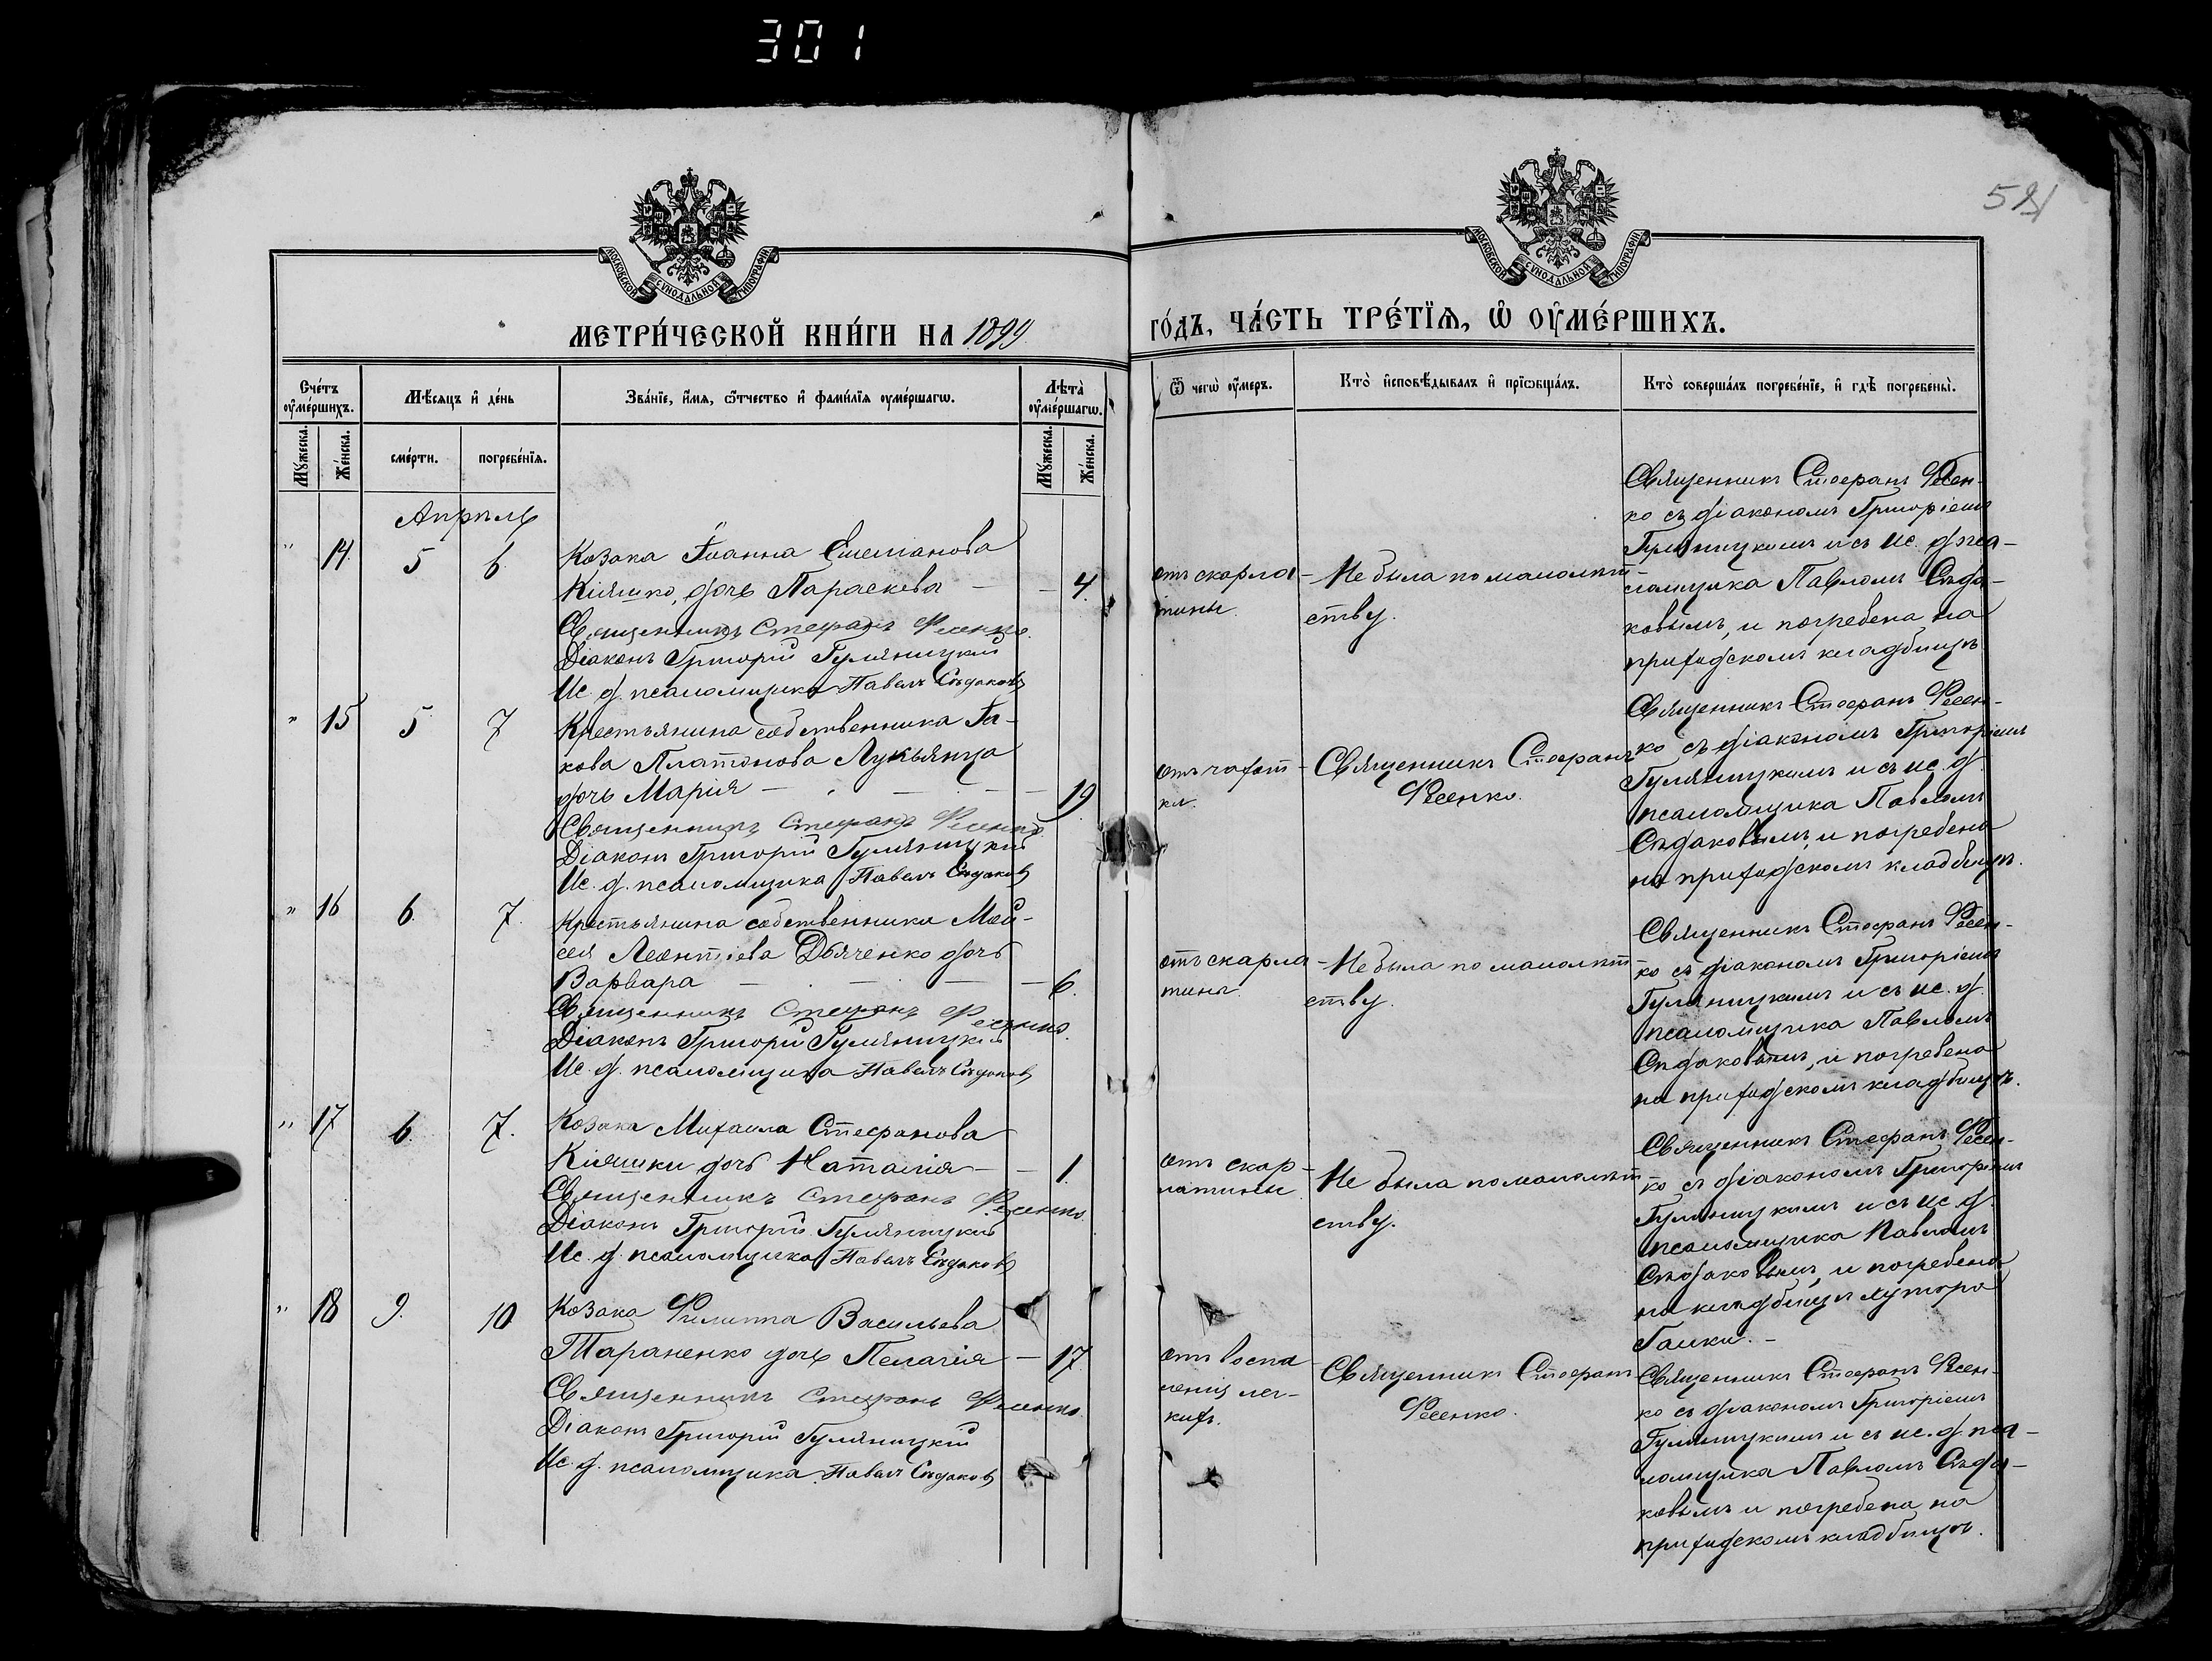 301
521
МОСКОВСКОЙ СѴНОДАЛЬНОЙ ТИПОГРАФІИ
МОСКОВСКОЙ СѴНОДАЛЬНОЙ ТИПОГРАФІИ
МЕТРИ́ЧЕСКОЙ КНИ́ГИ НА 1899
ГО́ДЪ, ЧА́СТЬ ТРЕ́ТЇѦ, Ѽ ОУ҆МЕ́РШИХЪ.
Сче́тъ оу҆ме́ршихъ.
Мѣ́сѧцъ и҆ де́нь
Зва́нїе, и҆́мѧ, ѻ҆́тчество и҆ фами́лїѧ оуме́ршагѡ.
Лѣ́та оу҆ме́ршагѡ.
Ѿ чегѡ̀ оу҆́меръ.
Кто̀ и҆сповѣ́дывалъ и҆ прїѡбща́лъ.
Кто̀ соверша́лъ погребе́нїе, и҆ гдѣ̀ погребены̀.
Му́жеска.
Же́нска.
сме́рти.
погребе́нїѧ.
Му́жеска.
Же́нска.
Апрѣль
" 14. 5 6.
Козака Іоанна
Кіяшко, дочь Параскева — 4.
Священникъ Стефанъ Фесенко.
Діаконъ Григорій Гуляницкій
Ис. д. псаломщика Павелъ Сѣдаковъ
отъ скарла-
тины.
Не была по малолѣт-
ству.
Священникъ Стефанъ Фесен-
ко съ діакономъ Григоріемъ
Гуляницкимъ и съ ис. д. пса-
ломщика Павломъ Сѣда-
ковымъ, и погребена на
приходскомъ кладбищѣ.
" 15 5 7
Крестьянина собственника Іа-
кова Платонова Лукьянца
дочь Марія — 19.
Священникъ Стефанъ Фесенко.
Діаконъ Григорій Гуляницкій
Ис. д. псаломщика Павелъ Сѣдаковъ
отъ чахот-
ки.
Священникъ Стефанъ
Фесенко.
Священникъ Стефанъ Фесен-
ко съ діакономъ Григоріемъ
Гуляницкимъ и съ ис. д.
псаломщика Павломъ
Сѣдаковымъ, и погребена
на приходскомъ кладбищѣ.
" 16 6. 7.
Крестьянина собственника Мои-
сея Леонтіева Дяченко дочь
Варвара — 6.
Священникъ Стефанъ Фесенко.
Діаконъ Григорій Гуляницкій
Ис. д. псаломщика Павелъ Сѣдаковъ
отъ скарла-
тины.
Не была по малолѣт-
ству.
Священникъ Стефанъ Фесен-
ко съ діакономъ Григоріемъ
Гуляницкимъ и съ ис. д.
псаломщика Павломъ
Сѣдаковымъ, и погребена
на приходскомъ кладбищѣ.
" 17 6. 7.
Козака Михаила Стефанова
Кіяшки дочь Наталія — 1.
Священникъ Стефанъ Фесенко.
Діаконъ Григорій Гуляницкій
Ис. д. псаломщика Павелъ Сѣдаковъ
отъ скар-
латины
Не была по малолѣт-
ству.
Священникъ Стефанъ Фесен-
ко съ діакономъ Григоріемъ
Гуляницкимъ и съ ис. д.
псаломщика Павломъ
Сѣдаковымъ, и погребена
на кладбищѣ хутора
" 18 9. 10
Козака Филиппа Васильева
Тараненко дочь Пелагія — 17.
Священникъ Стефанъ Фесенко.
Діаконъ Григорій Гуляницкій
Ис. д. псаломщика Павелъ Сѣдаковъ
отъ воспа
ленія лег-
кихъ.
Священникъ Стефанъ
Фесенко.
Священникъ Стефанъ Фесен-
ко съ діакономъ Григоріемъ
Гуляницкимъ и съ ис. д. пса-
ломщика Павломъ Сѣда-
ковымъ и погребена на
приходскомъ кладбищѣ.